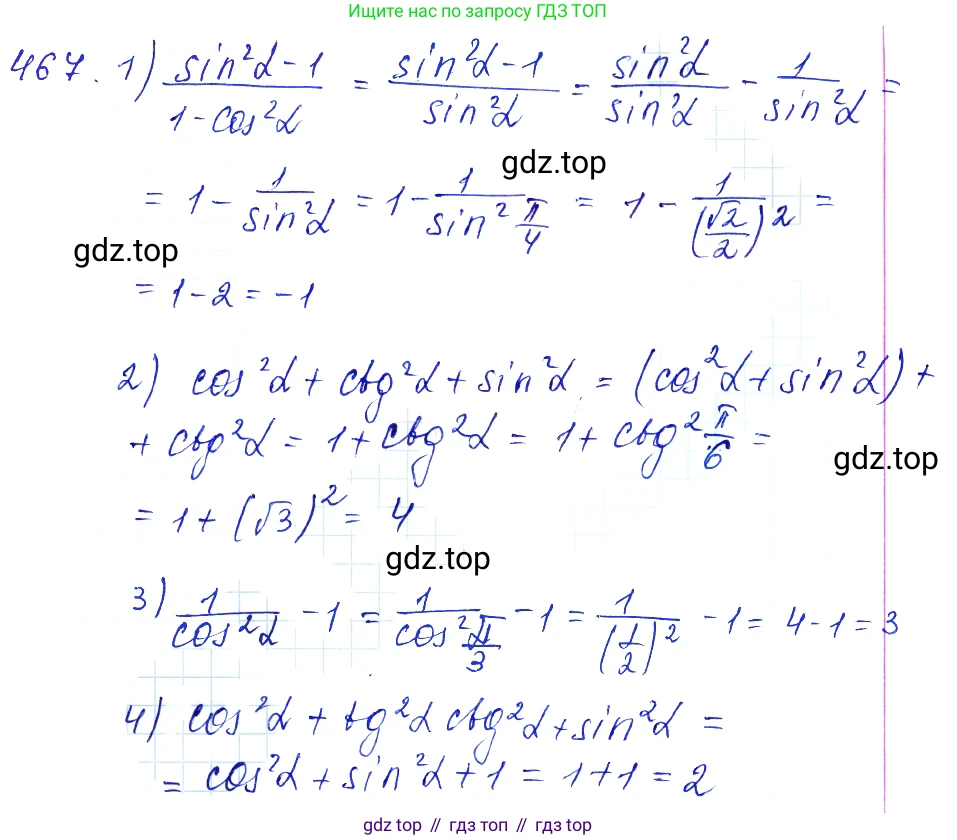 Ищите нас по запросу ГДЗ ТОП
467. 1) (sin²α - 1)/(1 - cos²α) = (sin²α - 1)/(sin²α) = sin²α/sin²α - 1/sin²α =
gdz.top
= 1 - 1/sin²α = 1 - 1/sin² π/4 = 1 - 1/(√2/2)² =
gdz.top
= 1 - 2 = -1
2) cos²α + ctg²α + sin²α = (cos²α + sin²α) +
+ ctg²α = 1 + ctg²α = 1 + ctg² π/6 =
gdz.top
= 1 + (√3)² = 4
gdz.top
3) 1/cos²α - 1 = 1/cos² π/3 - 1 = 1/(1/2)² - 1 = 4 - 1 = 3
4) cos²α + tg²α ctg²α + sin²α =
= cos²α + sin²α + 1 = 1 + 1 = 2
gdz top // гдз топ // gdz top